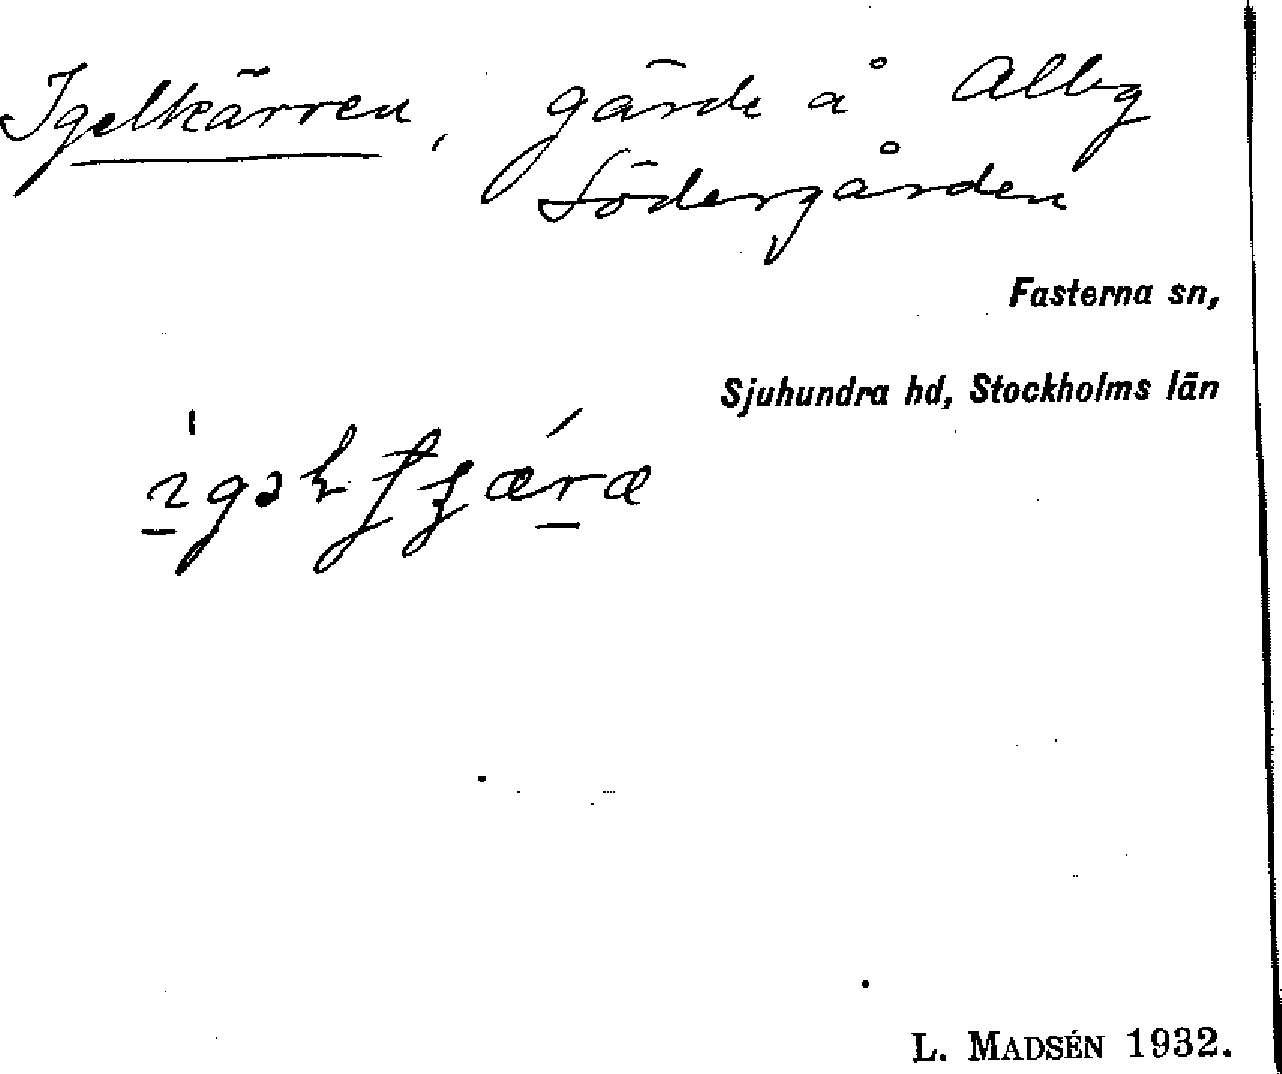 Igelkärren, gärde å Allby
Södergården
Fasterna sn,
Sjuhundra hd, Stockholms län
L. MADSÉN 1932.